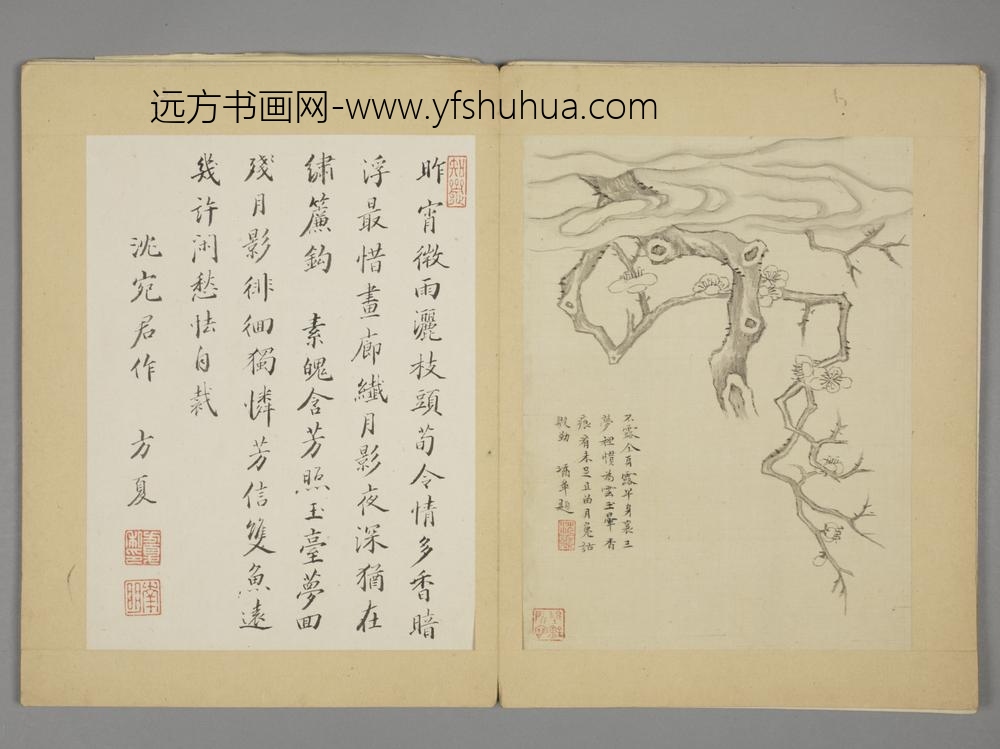 远方书画网-www.yfshuhua.com
昨宵微雨灑枝頭荀令情多香暗
浮最惜畫廊纖月影夜深猶在
繡簾鈎 素魄含芳照玉臺夢回
殘月影徘徊獨憐芳信雙魚遠
幾許閑愁怯自裁
洮宛君作 方夏
不露全耳露半身裏三
夢裡慣為雲玉暈香
痕看未足且的月兔話
殷勤 題